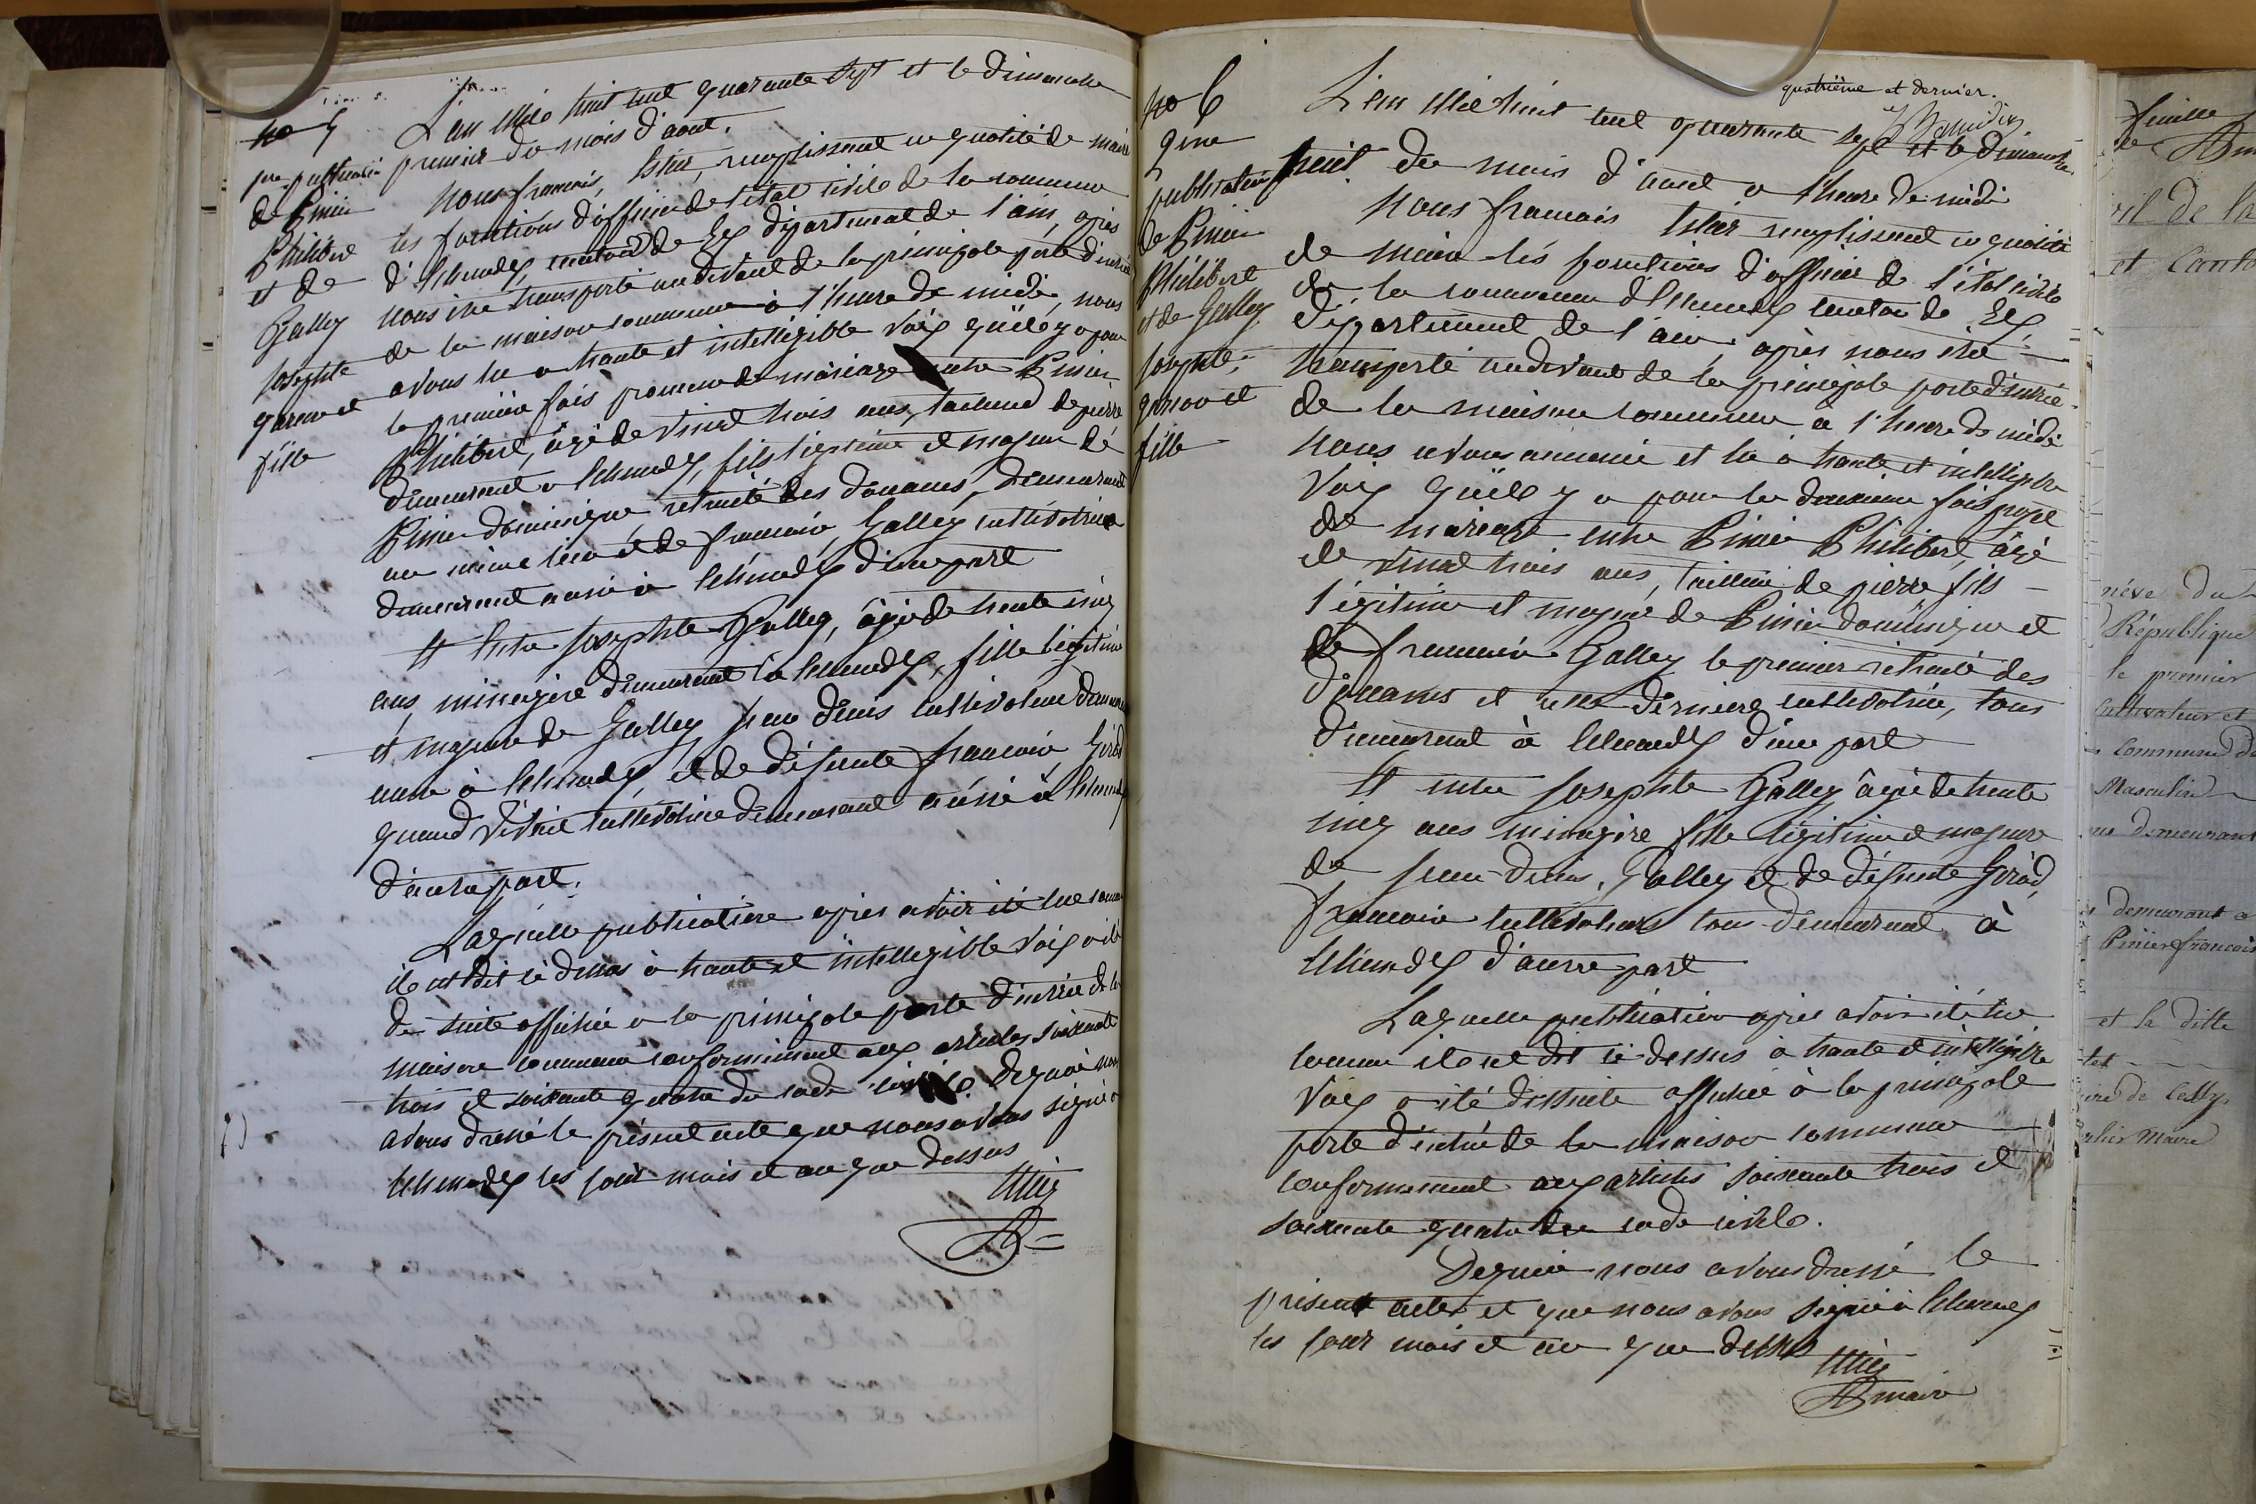 no 5
pre publication
de Pinier
Philibert
et de
Galley
Josephte
garcon et
fille
L'an Mil huit cent quarante Sept et le dimanche
premier du mois d'aout.
Nous francois, remplissant en qualité de maire
les fonctions d'officier de l'état civile de la commune
d' canton de Gex département de l'ain, après
nous être transporté audevant de la principale porte d'entrée
de la maison commune à l'heure de midi, nous
avons lu a haute et intelligible Voix qu'ile y a pour
la première fois promesse de mariage entre Pinier
Philibert, âgé de vingt trois ans, de pierre
demeurant a, fils légitime et majeur de
Pinier dominique, retraité des douanes, demeurant
au même lieu et de francoise Galley cultivatrice
demeurant aussi à d'une part
Et Entre Josephte Galley, âgée de trente cinq
ans, ménagère demeurant à, fille légitime
et majeure de Galley Jean denis cultivateur
à et de défunte francoise Girod
quand vivait cultivatrice demeurant aussi à
d'autre part.
Laquelle publication après avoir été lue comme
ile est dit ci dessus à haute et intelligible Voix a été
de suite affichée a la principale porte d'entrée de la
maison commune conformément aux articles soixante
trois et soixante quatre du code civile. Dequoi nous
avons dressé le présent acte que nous avons signé a
les jour mois et an que dessus
quatrième et dernier.
no 6
2me
publication
de Pinier
Philibert
et de Galley
Josephte,
garcon et
fille
L'an Mil huit cent quarante sept et le dimanche
huit du mois d'aout a l'heure de midi
Nous francois remplissant en qualité
de maire les fonctions d'officier de l'état civile
de la commune d' canton de Gex
département de l'ain, après nous être
transporté audevant de la principale porte d'entrée
de la maison commune à l'heure de midi
Nous avons annoncé et lu à haute et intelligible
Voix qu'ile y a pour la deuxieme fois projet
de mariage entre Pinier Philibert, âgé
de vingt trois ans, tailleur de pierre fils
légitime et majeur de Pinier dominique et
de francoise Galley le premier retraité des
douanes et cette dernière cultivatrice, tous
demeurant à d'une part
Et entre Josephte Galley âgée de trente
cinq ans ménagère fille légitime et majeure
de Jean denis Galley et de défunte Girod
francoise cultivateurs tous demeurant à
d'autre part
Laquelle publication après avoir été lue
comme ile est dit ci dessus à haute et intelligible
Voix a été desuite affichée à la principale
porte d'entrée de la maison commune
conformément aux articles soixante trois et
soixante quatre du code civile.
Dequoi nous avons dressé le
présent acte et que nous avons signé à
les jour mois et an que dessus
maire
feuille
et Canto
République
le premier
cultivateur et
commune de
Masculin
demeurant
demeurant a
Pinier francois
et la ditte
Maire